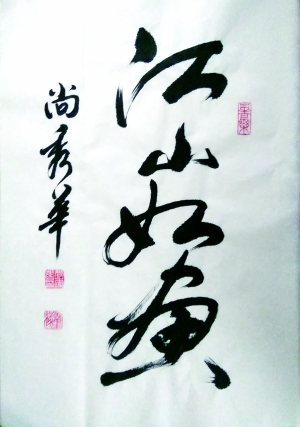 江山如画
尚秀华